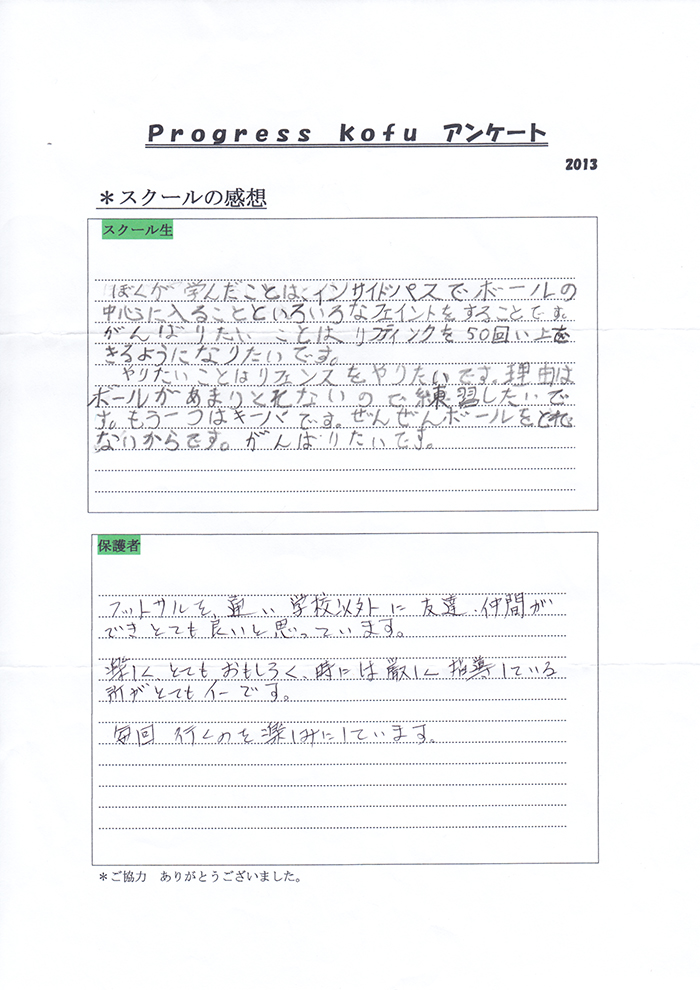 Progress Kofu アンケート
2013
＊スクールの感想
スクール生
ぼくが学んだことは、インサイドパスでボールの
中心に入ることといろいろなフェイントをすることです。
がんばりたいことは、リフティングを50回い上を
きるようになりたいです。
やりたいことはリフェンスをやりたいです。理由は
ボールがあまりとれないので練習したいで
す。もう一つはキーパです。ぜんぜんボールをとれて
ないからです。がんばりたいです。
保護者
フットサルを通い学校以外に友達、仲間が
できとても良いと思っています。
楽しく、とてもおもしろく、時には厳しく指導している
所がとてもイーです。
毎回行くのを楽しみにしています。
＊ご協力 ありがとうございました。